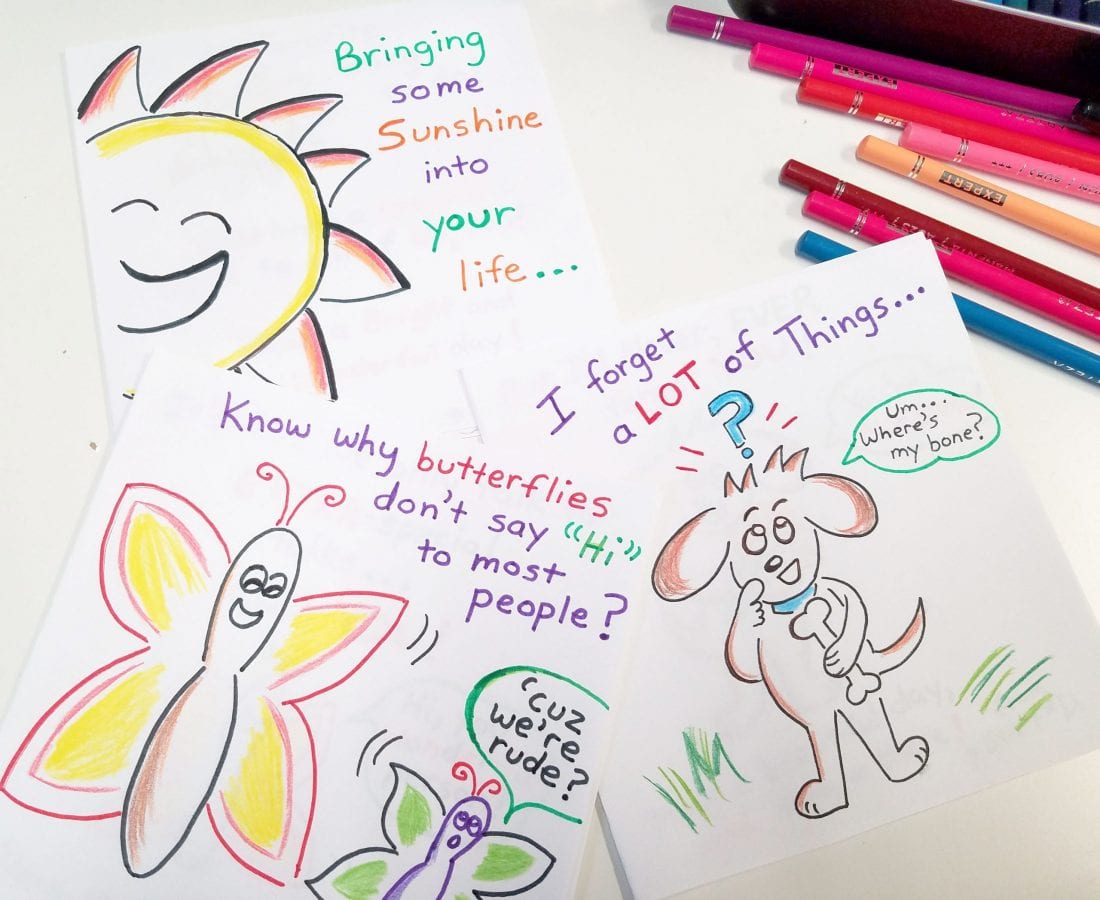 Bringing
some
Sunshine
into
your
life...
I forget
a LOT of Things...
?
Um...
Where's
my bone?
Know why butterflies
don't say "Hi"
to most
people?
"Cuz
we're
rude?
EXPERT
EXPERT